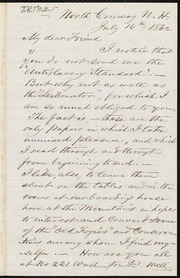 North Conway N.H.
July 16th 1862
My dear Friend
I notice that
you do not send me the
"Antislavery Standard".—
But why not, as well as
the Liberator, for which I
am so much obliged to you.
The fact is— these are the
only papers in which I take
unmixed pleasure, and which
I read through and through
from beginning to end.—
I like also, to leave them
about on the tables and in the
rooms of our boarding house
here at the Mountains in hopes
to interest and convert some
of the Old Fogies and Conserva-
tives among whom I find my-
self.— How are you all
at No 221 Washington St? Well